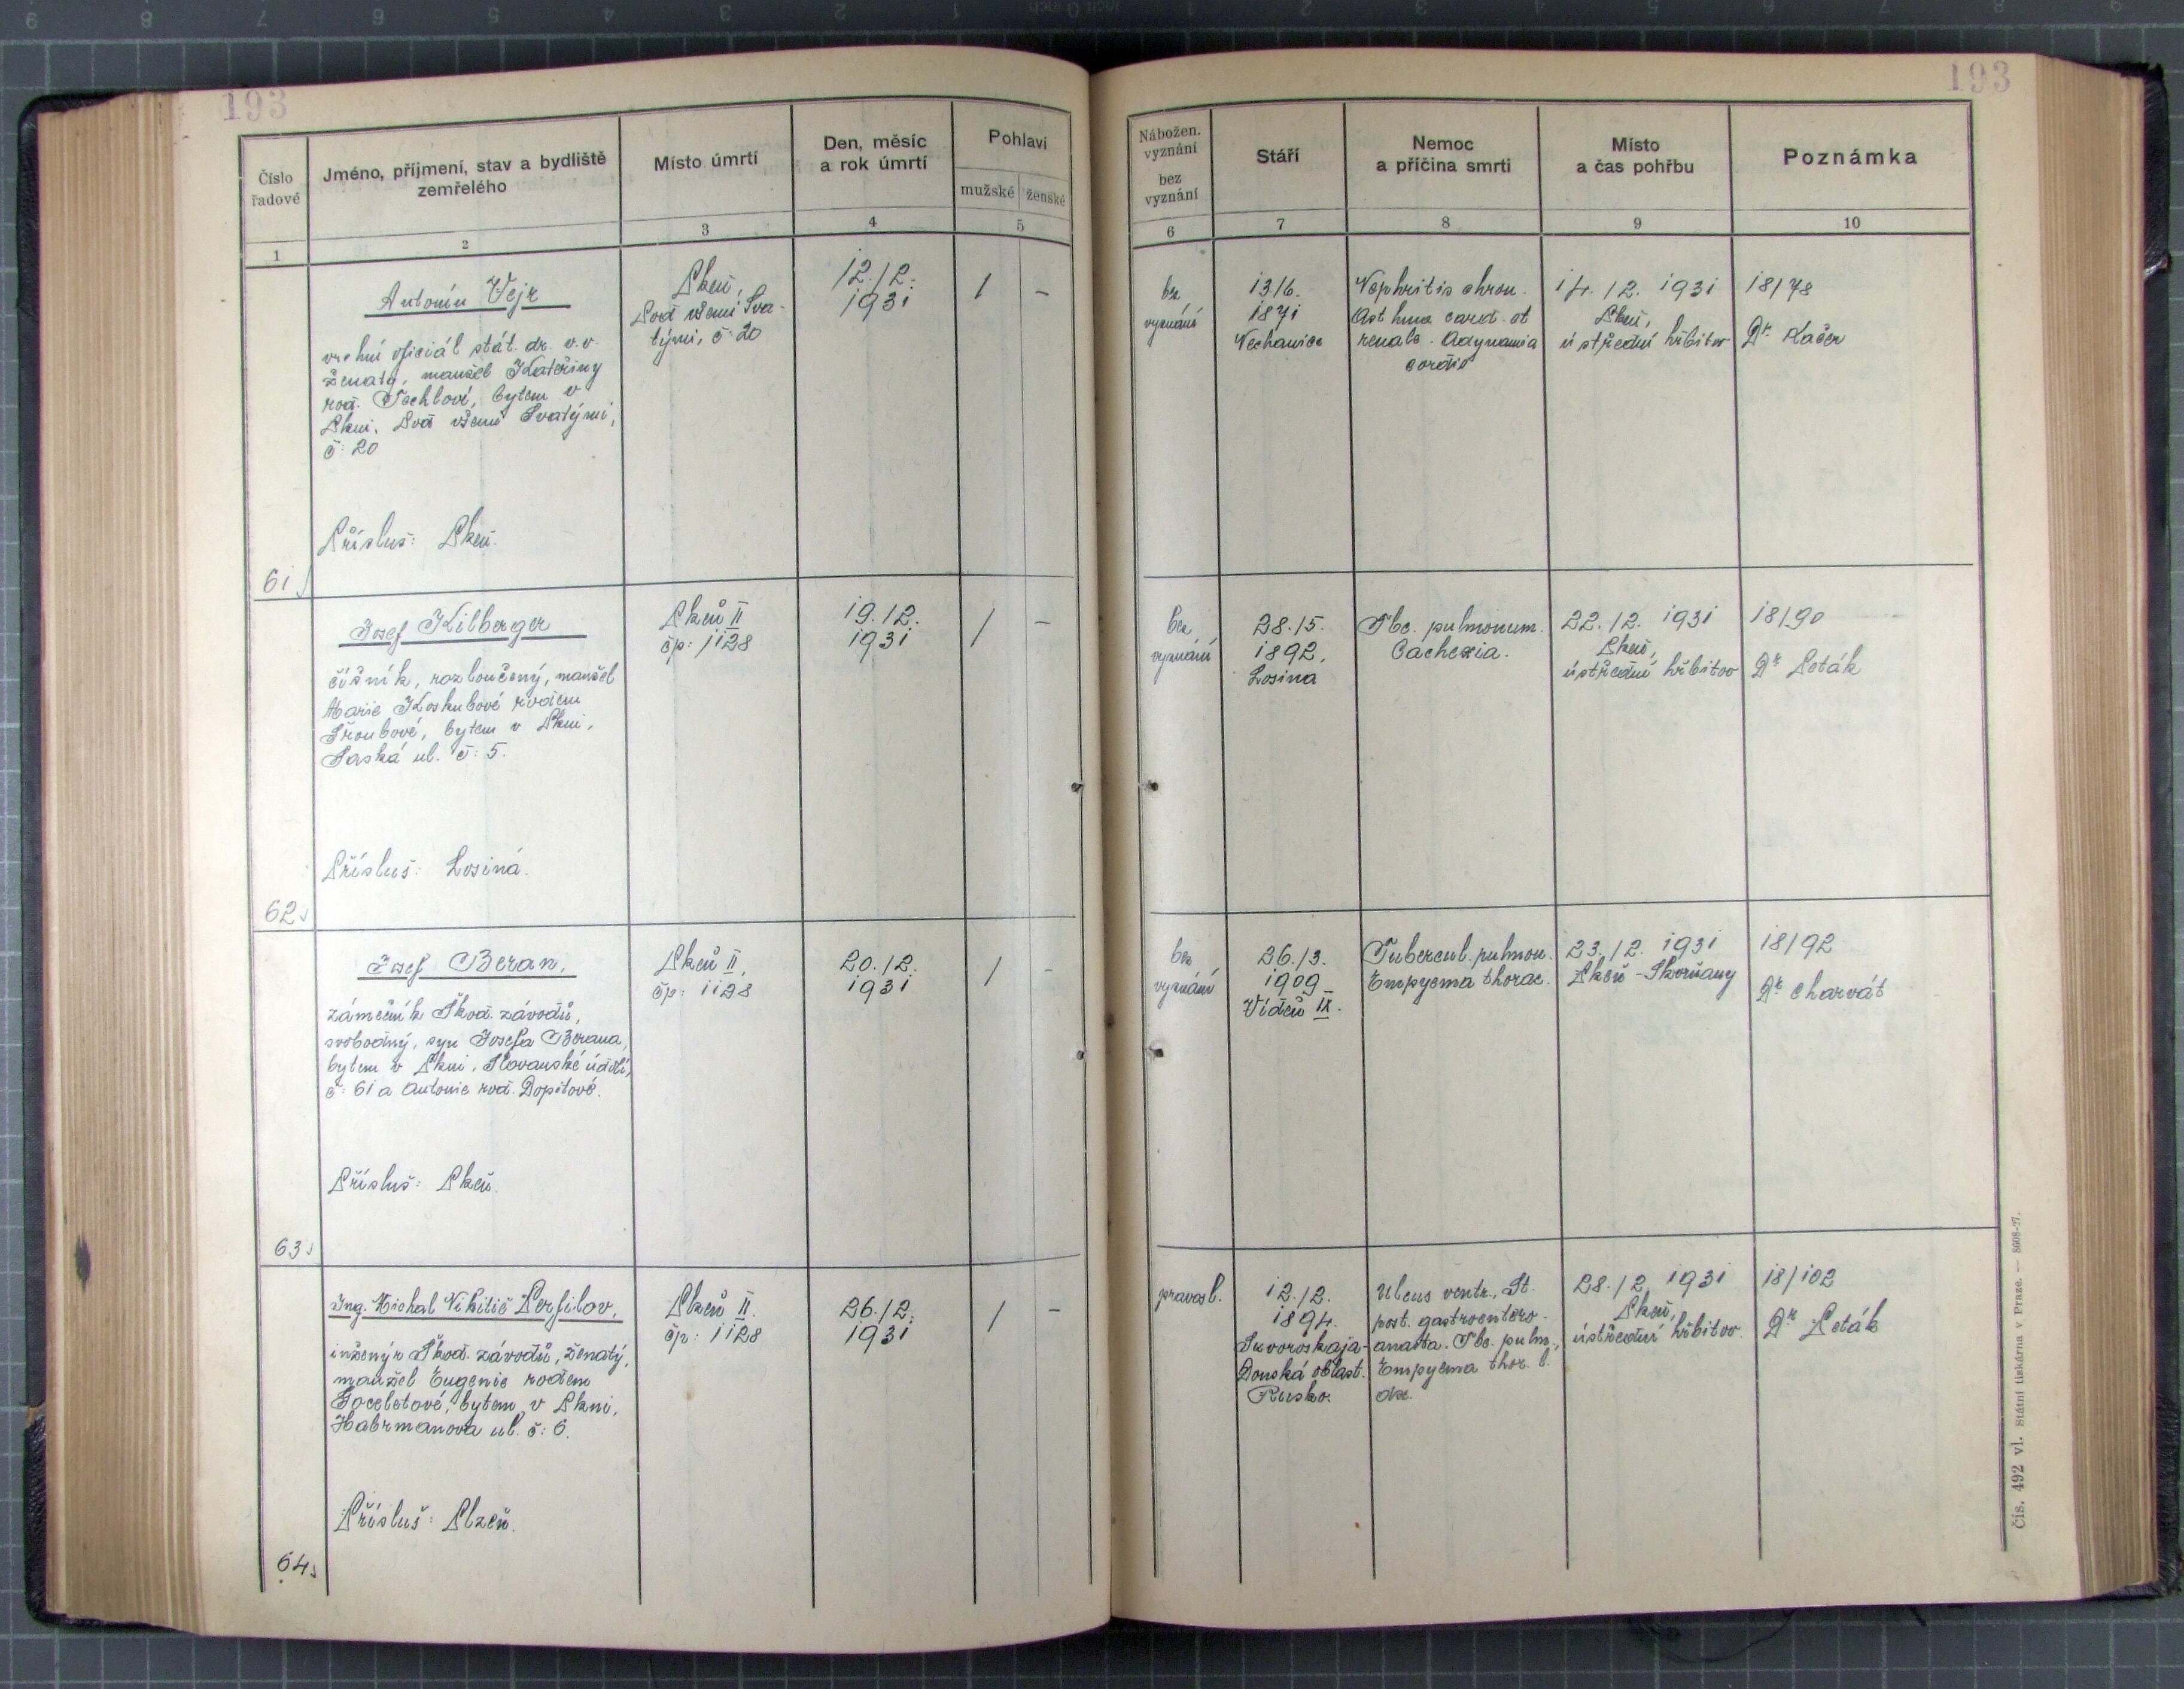 193
193
Číslo
řadové
Jméno, příjmení, stav a bydliště
zemřelého
Místo úmrtí
Den, měsíc
a rok úmrtí
Pohlaví
mužské
ženské
1
2
3
4
5
Nábožen.
vyznání
bez
vyznání
Stáří
Nemoc
a příčina smrti
Místo
a čas pohřbu
Poznámka
6
7
8
9
10
61
Antonín Vejr
vrchní oficiál stát. dr. v.v.
ženatý, manžel Kateřiny
roz. Tochlové, bytem v
Plzni, Pod všemi Svatými,
č: 20
Přísluš: Plzeň.
Plzeň,
Pod všemi Sva-
tými, č: 20
12./12.
1931
1
–
bez
vyznání
13./6.
1871
Nechanice
Nephritis chron.
Asthma card. et
renale. Adynamia
cordis
14./12. 1931
Plzeň,
ústřední hřbitov
18/78
Dr. Kačer
62
Josef Kilberger
číšník, rozloučený, manžel
Marie Koskubové rodem
Šroubové, bytem v Plzni,
Saská ul. č: 5.
Přísluš: Losiná.
Plzeň II
čp: 1128
19./12.
1931
1
–
bez
vyznání
28./5.
1892,
Losina
Tbc. pulmonum.
Cachexia.
22./12. 1931
Plzeň,
ústřední hřbitov
18/90
Dr Peták
63
Josef Beran,
zámečník Škod. závodů,
svobodný, syn Josefa Berana,
bytem v Plzni, Slovanské údolí,
č: 61 a Antonie rod. Dopitové.
Přísluš: Plzeň.
Plzeň II,
čp: 1128
20./12.
1931
1
-
bez
vyznání
26./3.
1909
Vídeň IX.
Tubercul. pulmon.
Empyema thorac.
23./12. 1931
Plzeň - Skvrňany
18/92
Dr Charvát
64
Ing. Michal Nikitič Perfilov,
inženýr Škod. závodů, ženatý,
manžel Eugenie rodem
bytem v Plzni,
Habrmanova ul. č: 6.
Přísluš: Plzeň.
Plzeň II.
čp: 1128
26./12.
1931
1
–
pravosl.
12./2.
1894.
Skvorskaja-
Donská oblast.
Rusko.
Ulcus ventr., St.
post. gastroentero-
anasta. Tbc. pulm.,
Empyema thor. l.
dx.
28./12. 1931
Plzeň,
ústřední hřbitov.
18/102
Dr Peták
Čís. 492 vl. Státní tiskárna v Praze. — 8608-27.